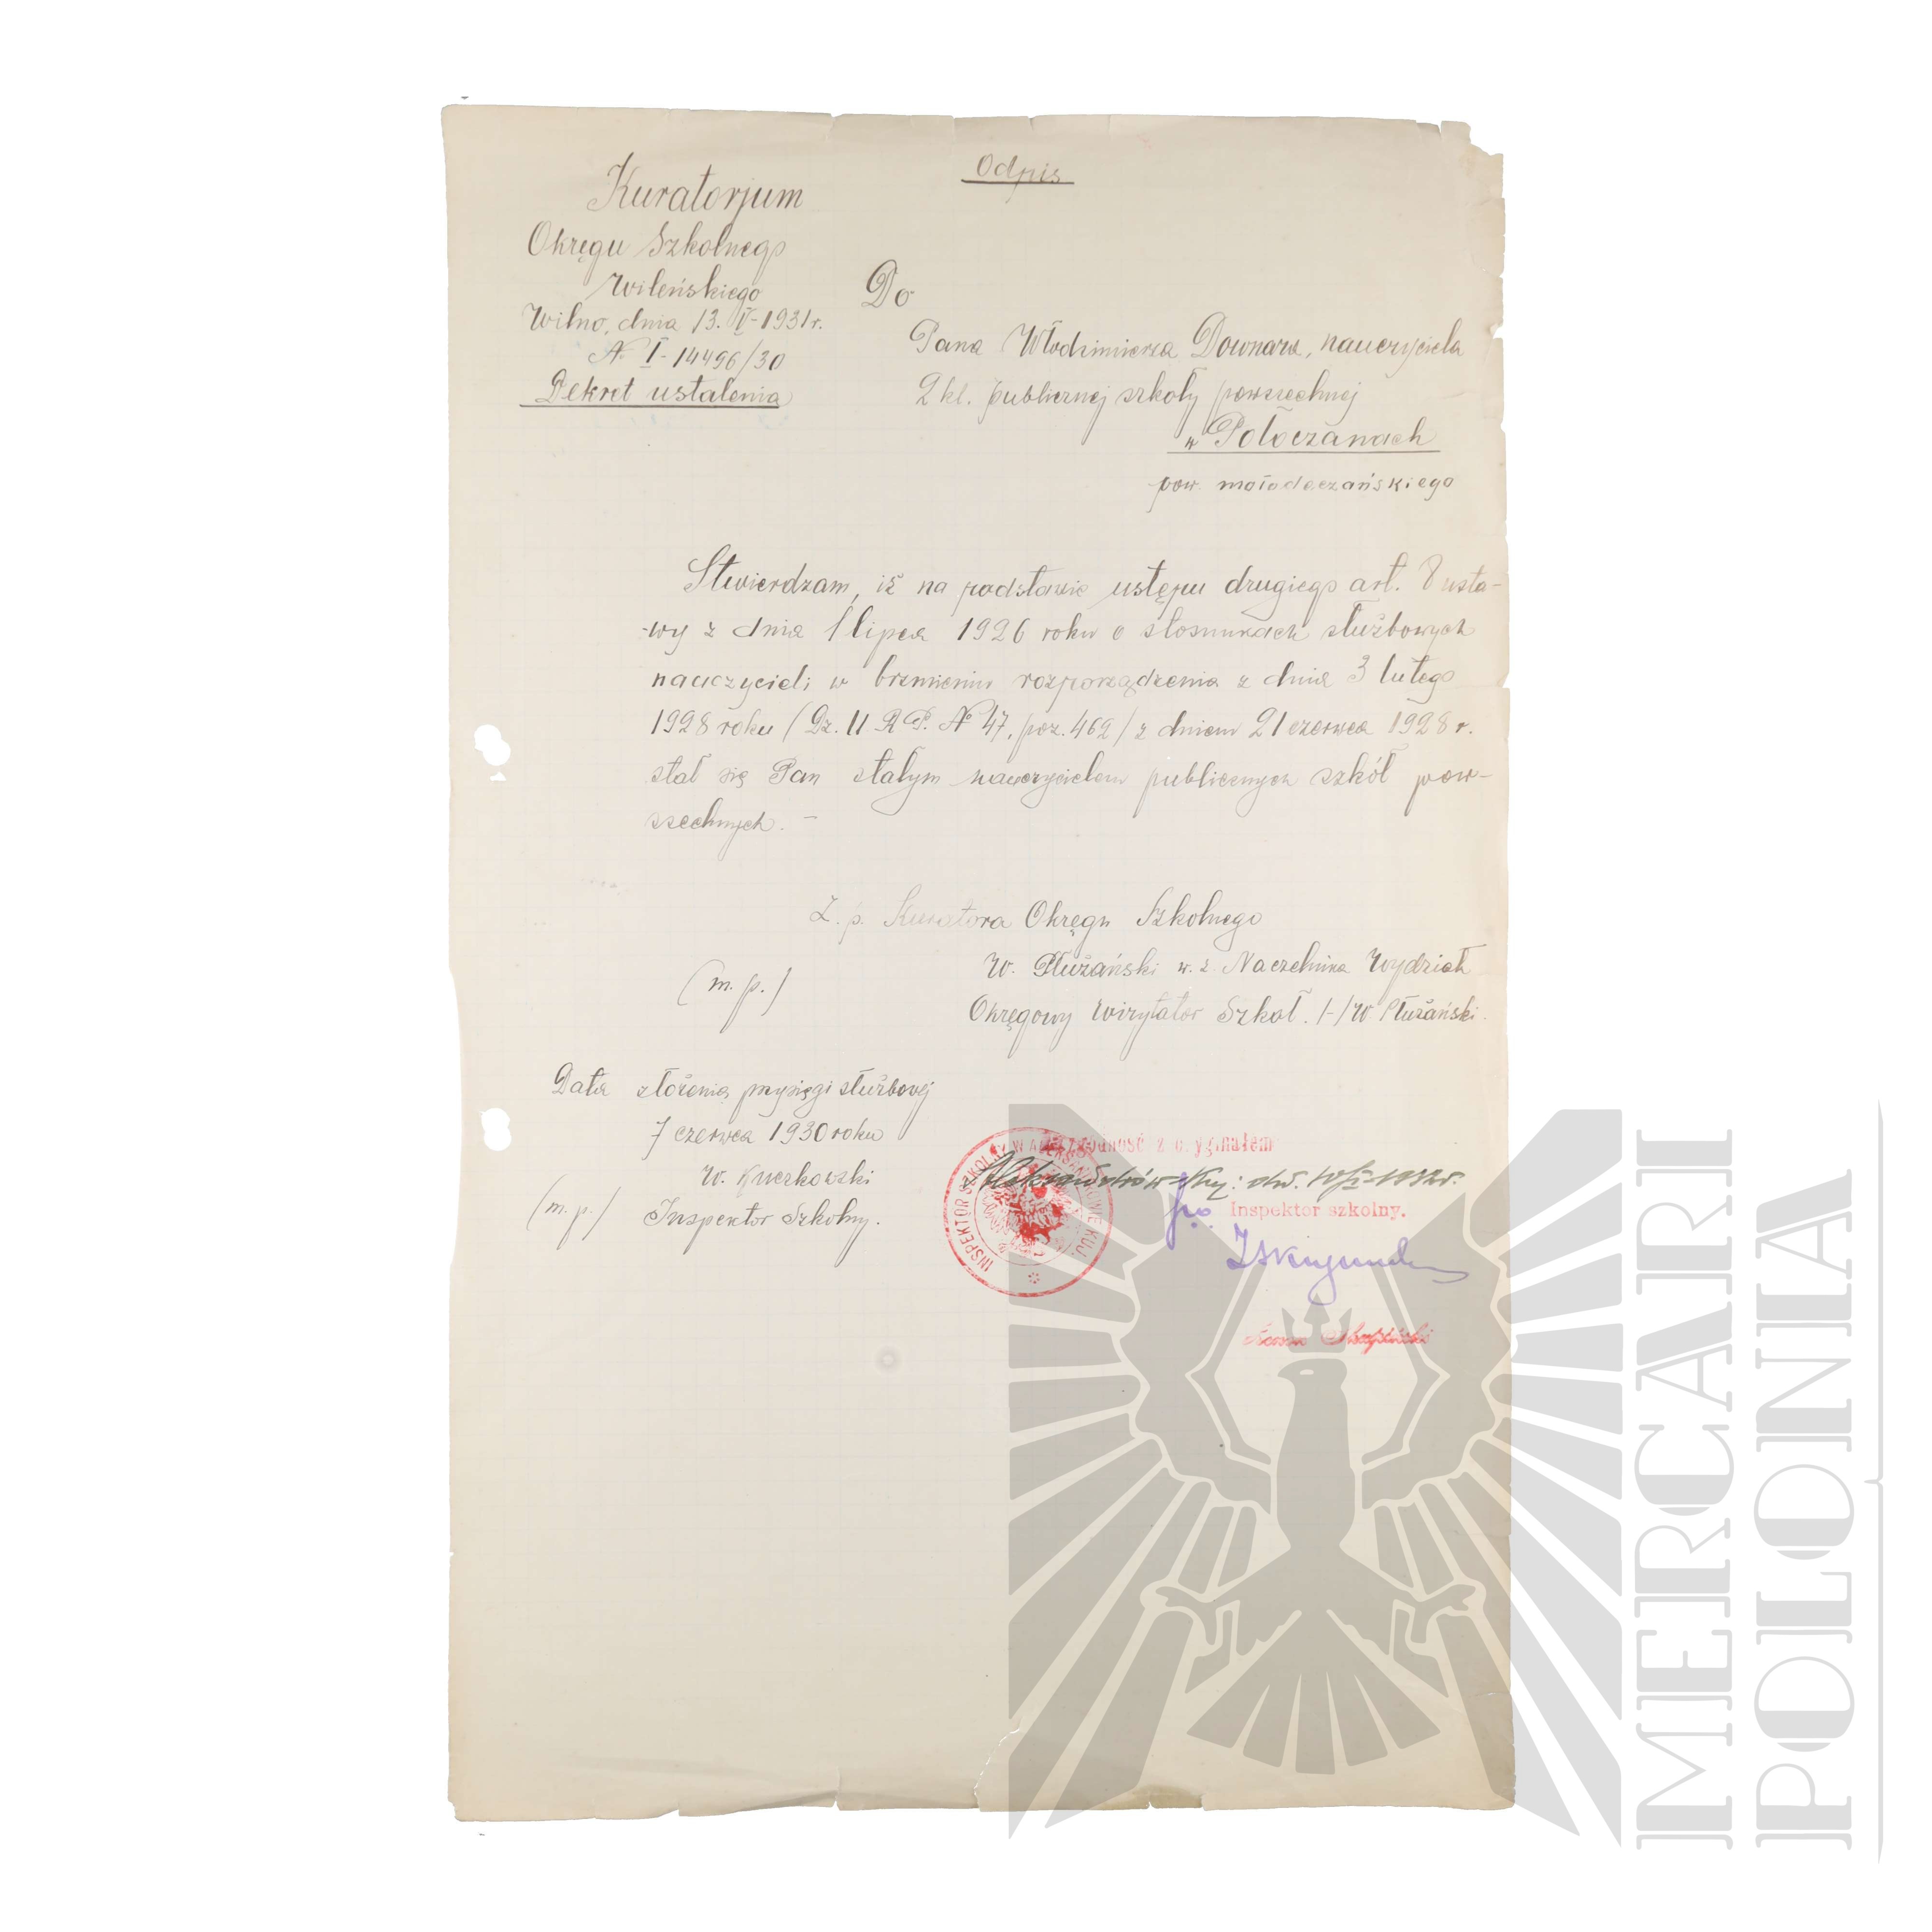 Odpis
Kuratorjum
Okręgu Szkolnego
Wileńskiego
Wilno, dnia 13. V-1931 r.
№ I-14496/30
Dekret ustalenia
Do
Pana Włodzimierza Downara, nauczyciela
2 kl. publicznej szkoły powszechnej
w Połoczanach
pow. mołodeczańskiego
Stwierdzam, iż na podstawie ustępu drugiego art. 8 usta-
-wy z dnia 1 lipca 1926 roku o stosunkach służbowych
nauczycieli w brzmieniu rozporządzenia z dnia 3 lutego
1928 roku (Dz. U. R. P. № 47, poz. 462/ z dniem 21 czerwca 1928 r.
stał się Pan stałym nauczycielem publicznych szkół pow-
szechnych. -
Z. p. Kuratora Okręgu Szkolnego
W. Płużański w. z. Naczelnika Wydział
Okręgowy Wizytator Szkół. /-/ W. Płużański.
(m. p.)
Data złożenia przysięgi służbowej
7 czerwca 1930 roku
W. Kuczkowski
(m. p.) Inspektor Szkolny.
zgodność z oryginałem
Aleksandrów-Kuj: dn.
p.o. Inspektor szkolny.
INSPEKTOR SZKOLNY W ALEKSANDROWIE KUJ.
MERCARI
POLONIA